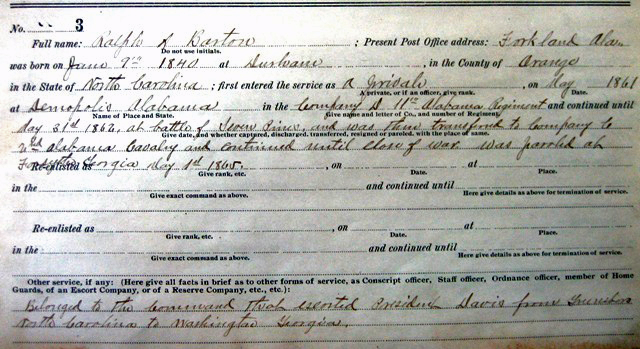 No. " " 3
Full name: Ralph A Barton ; Present Post Office address: Forkland Ala.
Do not use initials.
was born on June 9th 1840 at Durham , in the County of Orange
in the State of North Carolina ; first entered the service as a Private , on May 1861
A private, or if an officer, give rank. Date.
at Demopolis Alabama in the Company D 11th Alabama Regiment and continued until
Name of Place and State. Give name and letter of Co., and number of Regiment.
May 31st 1862, at battle of Seven Pines, and was then transfered to Company C
Give date, and whether captured, discharged, transferred, resigned or paroled, with the name of same.
2nd Alabama Cavalry and continued until close of war was paroled at
Re-enlisted as Forsyth Georgia May 1st 1865. , on at
Give rank, etc. Date. Place.
in the and continued until
Give exact command as above. Here give details as above for termination of service.
Re-enlisted as , on at
Give rank, etc. Date. Place.
in the and continued until
Give exact command as above. Here give details as above for termination of service.
Other service, if any: (Here give all facts in brief as to other forms of service, as Conscript officer, Staff officer, Ordnance officer, member of Home
Guards, of an Escort Company, or of a Reserve Company, etc., etc.):
Belonged to the Command that escorted President Davis from Greensboro
North Carolina to Washington Georgia.